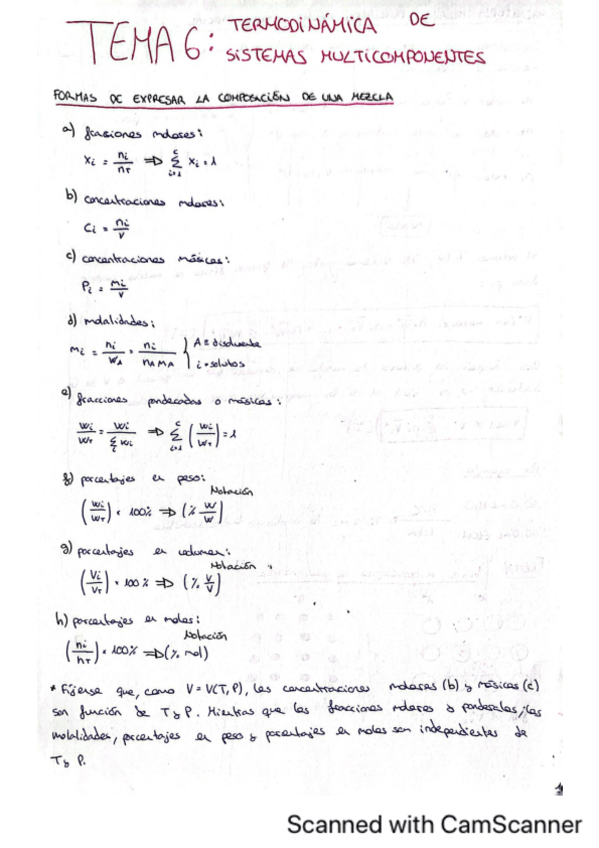 TEMA 6: TERMODINÁMICA DE
SISTEMAS MULTICOMPONENTES
FORMAS DE EXPRESAR LA COMPOSICIÓN DE UNA MEZCLA
a) fracciones molares:
xi = ni/nT => Σ(i=1, c) xi = 1
b) concentraciones molares:
Ci = ni/V
c) concentraciones másicas:
Pi = mi/V
d) molalidades:
mi = ni/WA = ni/(nAMA) } A = disolvente
i = solutos
e) fracciones ponderadas o másicas:
wi/wT = wi/(Σi wi) => Σ(i=1, c) (wi/wT) = 1
f) porcentajes en peso:
Notación
(wi/wT) · 100% => (% w/w)
g) porcentajes en volumen:
Notación
(Vi/VT) · 100% => (% V/V)
h) porcentajes en moles:
Notación
(ni/nT) · 100% => (% mol)
* Fíjense que, como V = V(T,P), las concentraciones molares (b) y másicas (c)
son función de T y P. Mientras que las fracciones molares y ponderales, las
molalidades, porcentajes en peso y porcentajes en moles son independientes de
T y P.
1
Scanned with CamScanner